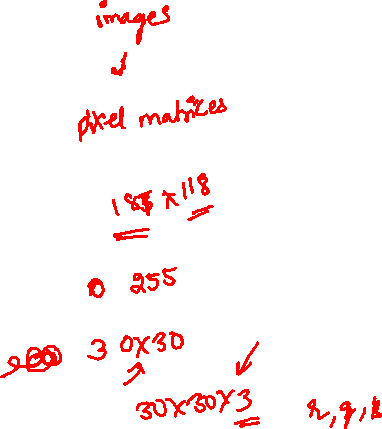 images
pixel matrices
185 x 118
0 255
30x30
30x30x3 r, g, b